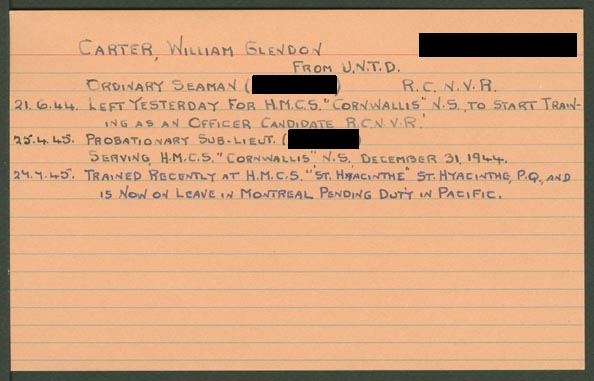 CARTER, WILLIAM GLENDON
FROM U.N.T.D.
ORDINARY SEAMAN ( ) R.C.N.V.R.
21.6.44. LEFT YESTERDAY FOR H.M.C.S. "CORNWALLIS" N.S. TO START TRAIN-
ING AS AN OFFICER CANDIDATE R.C.N.V.R.
25.4.45. PROBATIONARY SUB-LIEUT. ( )
SERVING H.M.C.S. "CORNWALLIS", N.S. DECEMBER 31, 1944.
24.7.45. TRAINED RECENTLY AT H.M.C.S. "ST. HYACINTHE" ST. HYACINTHE, P.Q., AND
IS NOW ON LEAVE IN MONTREAL PENDING DUTY IN PACIFIC.